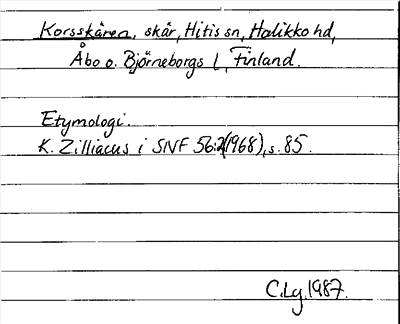 Korsskären, skär, Hitis sn, Halikko hd,
Åbo o. Björneborgs l, Finland.
Etymologi.
K. Zilliacus i SNF 56:2(1968), s. 85.
C. Lg. 1987.